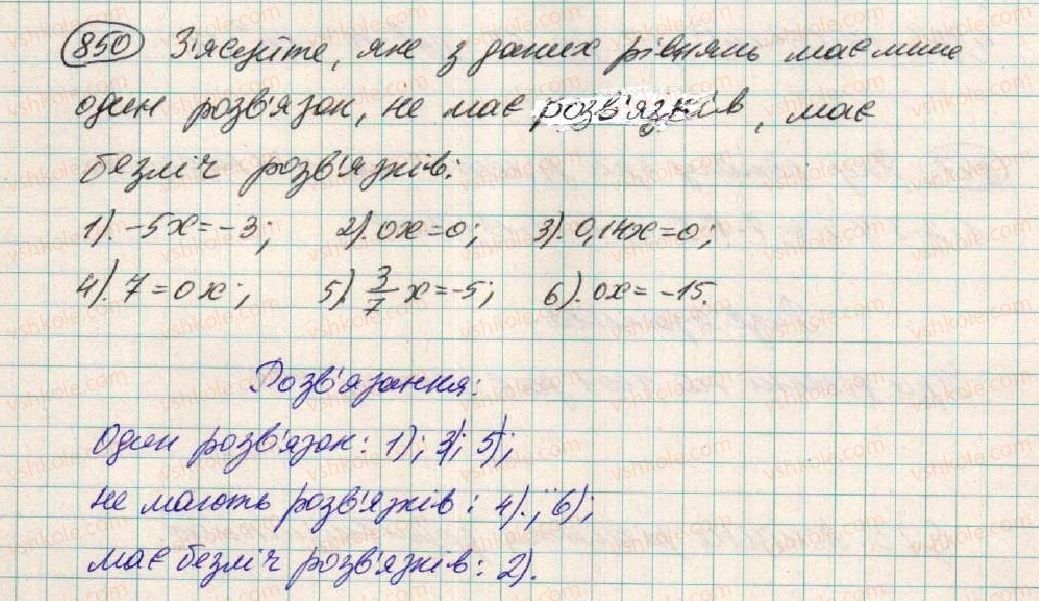 850 З'ясуйте, яке з даних рівнянь має лише
один розв'язок, не має розв'язків, має
безліч розв'язків:
1). -5x = -3; 2). 0x = 0; 3). 0,14x = 0;
4). 7 = 0x; 5). 3/7 x = -5; 6). 0x = -15.
Розв'язання:
Один розв'язок: 1); 3); 5);
не мають розв'язків: 4).; 6);
має безліч розв'язків: 2).